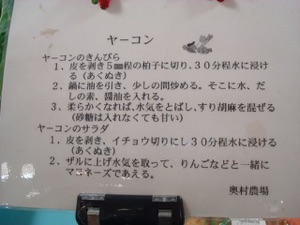 ヤーコン
ヤーコンのきんぴら
1、皮を剥き5㎜程の柏子に切り、30分程水に浸ける（あくぬき）
2、鍋に油を引き、少しの間炒める。そこに水、だしの素、醤油を入れる。
3、柔らかくなれば、水気をとばし、すり胡麻を混ぜる
（砂糖は入れなくても甘い）
ヤーコンのサラダ
1、皮を剥き、イチョウ切りにし30分程水に浸ける
（あくぬき）
2、ザルに上げ水気を取って、りんごなどと一緒に
マヨネーズであえる。
奥村農場